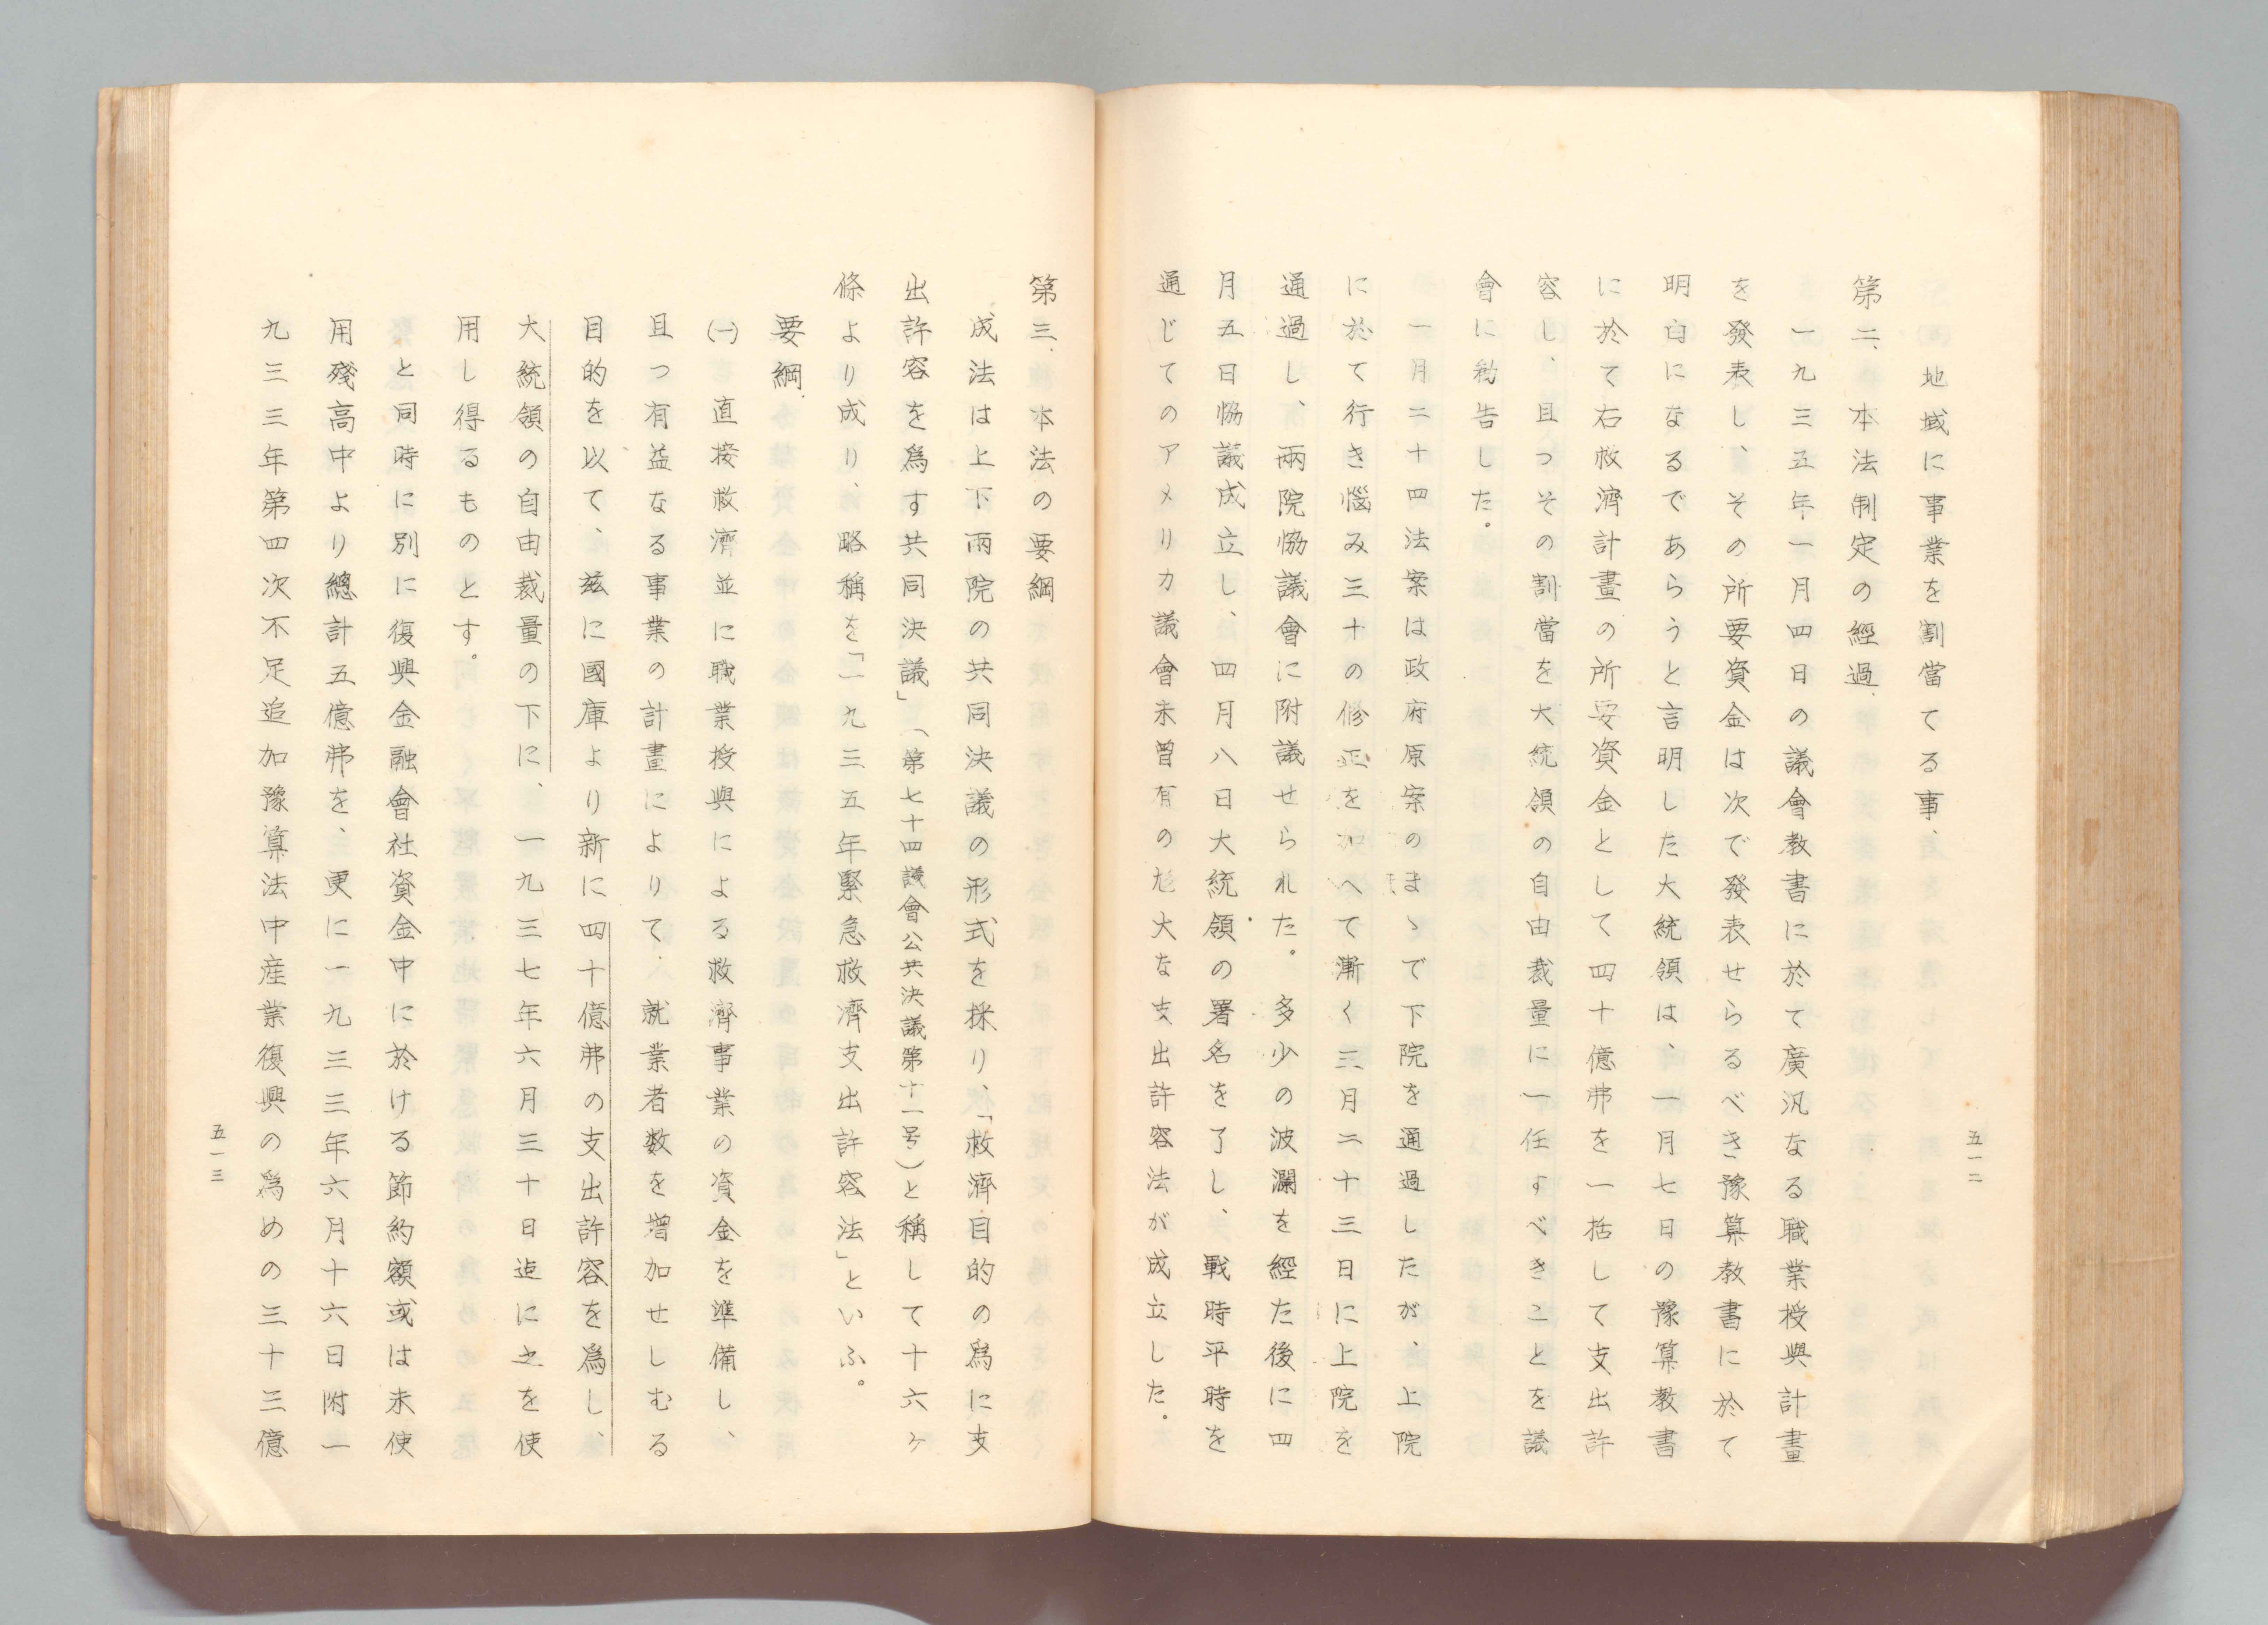 地域に事業を割當てる事、
第二、本法制定の經過、
一九三五年一月四日の議會教書に於て廣汎なる職業授與計畫
を發表し、その所要資金は次で發表せらるべき豫算教書に於て
明白になるであらうと言明した大統領は、一月七日の豫算教書
に於て右救濟計畫の所要資金として四十億弗を一括して支出許
容し、且つその割當を大統領の自由裁量に一任すべきことを議
會に勸告した。
一月二十四法案は政府原案のまゝで下院を通過したが、上院
に於て行き惱み三十の修正を加へて漸く三月二十三日に上院を
通過し、兩院協議會に附議せられた。多少の波瀾を經た後に四
月五日協議成立し、四月八日大統領の署名を了し、戰時平時を
通じてのアメリカ議會未曾有の尨大な支出許容法が成立した。
五一二
第三、本法の要綱
成法は上下兩院の共同決議の形式を採り、「救濟目的の爲に支
出許容を爲す共同決議」（第七十四議會公共決議第十一号）と稱して十六ヶ
條より成り、略稱を「一九三五年緊急救濟支出許容法」といふ。
要綱
㈠　直接救濟並に職業授與による救濟事業の資金を準備し、
且つ有益なる事業の計畫によりて、就業者数を増加せしむる
目的を以て、茲に國庫より新に四十億弗の支出許容を爲し、
大統領の自由裁量の下に、一九三七年六月三十日迄に之を使
用し得るものとす。
と同時に別に復興金融會社資金中に於ける節約額或は未使
用殘高中より總計五億弗を、更に一九三三年六月十六日附一
九三三年第四次不足追加豫算法中産業復興の爲めの三十三億
五一三